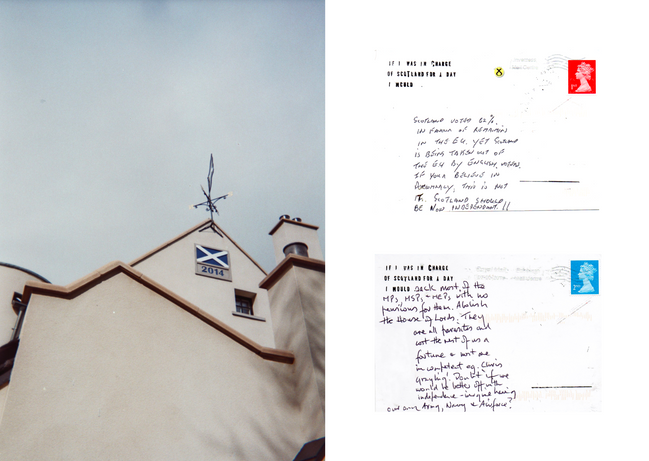 2014
IF I WAS IN CHARGE
OF SCOTLAND FOR A DAY
I WOULD
1ST
SCOTLAND VOTED 62%,
IN FAVOUR OF REMAIN
IN THE EU. YET SCOTLAND
IS BEING TAKEN OUT OF
THE EU BY ENGLISH VOTES.
IF YOUR BELIEVE IN
DEMOCRACY, THIS IS NOT
IT. SCOTLAND SHOULD
BE NOW INDEPENDENT.!!
IF I WAS IN CHARGE
OF SCOTLAND FOR A DAY
I WOULD sack most of the
MPs, MSPs, + MEPs with no
pensions for them. Abolish
the House of Lords. They
are all parasites and
cost the rest of us a
fortune & most are
incompetent eg. Chris
Grayling. Don't if we
would be better off with
independence - imagine having
our own Army, Navy & Airforce?